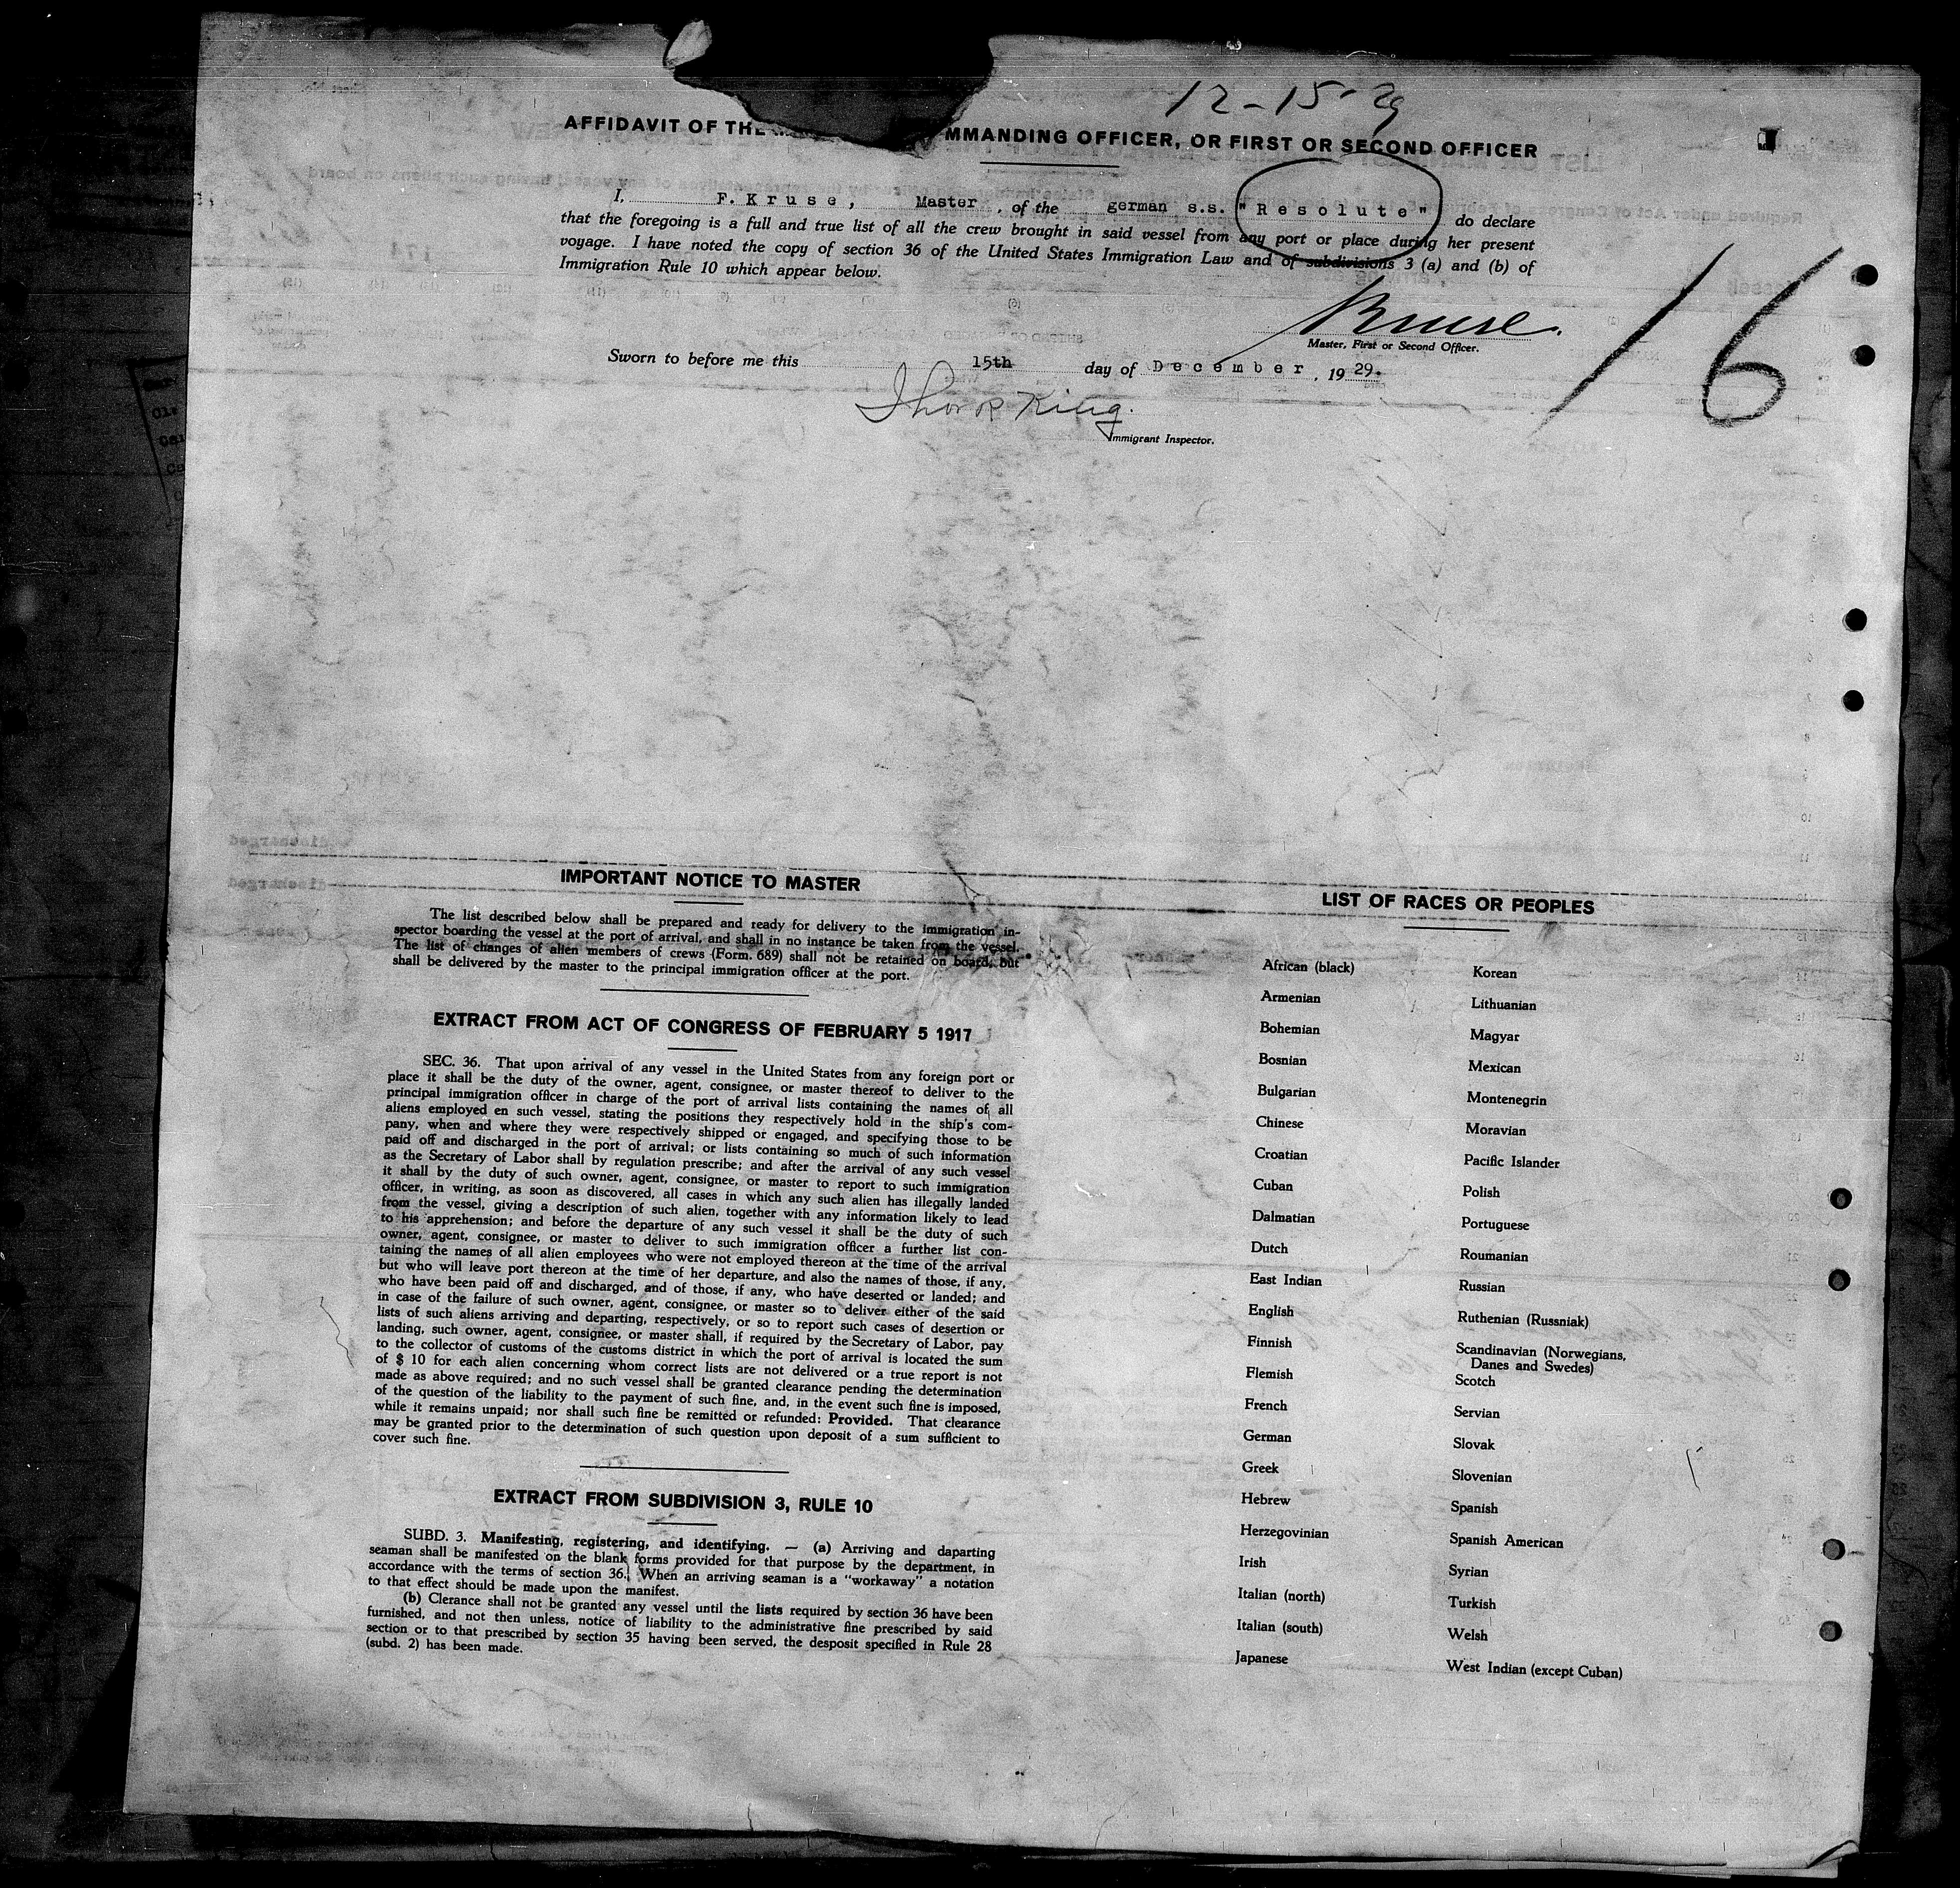 12-15-29
AFFIDAVIT OF THE MMANDING OFFICER, OR FIRST OR SECOND OFFICER
I, F. Kruse, Master, of the german s.s. "Resolute" do declare
that the foregoing is a full and true list of all the crew brought in said vessel from any port or place during her present
voyage. I have noted the copy of section 36 of the United States Immigration Law and of subdivisions 3 (a) and (b) of
Immigration Rule 10 which appear below.
16
Kruse.
Master, First or Second Officer.
Sworn to before me this 15th day of December, 1929.
King.
Immigrant Inspector.
IMPORTANT NOTICE TO MASTER
The list described below shall be prepared and ready for delivery to the immigration in-
spector boarding the vessel at the port of arrival, and shall in no instance be taken from the vessel.
The list of changes of alien members of crews (Form. 689) shall not be retained on board, but
shall be delivered by the master to the principal immigration officer at the port.
EXTRACT FROM ACT OF CONGRESS OF FEBRUARY 5 1917
SEC. 36. That upon arrival of any vessel in the United States from any foreign port or
place it shall be the duty of the owner, agent, consignee, or master thereof to deliver to the
principal immigration officer in charge of the port of arrival lists containing the names of all
aliens employed en such vessel, stating the positions they respectively hold in the ship's com-
pany, when and where they were respectively shipped or engaged, and specifying those to be
paid off and discharged in the port of arrival; or lists containing so much of such information
as the Secretary of Labor shall by regulation prescribe; and after the arrival of any such vessel
it shall by the duty of such owner, agent, consignee, or master to report to such immigration
officer, in writing, as soon as discovered, all cases in which any such alien has illegally landed
from the vessel, giving a description of such alien, together with any information likely to lead
to his apprehension; and before the departure of any such vessel it shall be the duty of such
owner, agent, consignee, or master to deliver to such immigration officer a further list con-
taining the names of all alien employees who were not employed thereon at the time of the arrival
but who will leave port thereon at the time of her departure, and also the names of those, if any,
who have been paid off and discharged, and of those, if any, who have deserted or landed; and
in case of the failure of such owner, agent, consignee, or master so to deliver either of the said
lists of such aliens arriving and departing, respectively, or so to report such cases of desertion or
landing, such owner, agent, consignee, or master shall, if required by the Secretary of Labor, pay
to the collector of customs of the customs district in which the port of arrival is located the sum
of $ 10 for each alien concerning whom correct lists are not delivered or a true report is not
made as above required; and no such vessel shall be granted clearance pending the determination
of the question of the liability to the payment of such fine, and, in the event such fine is imposed,
while it remains unpaid; nor shall such fine be remitted or refunded: Provided. That clearance
may be granted prior to the determination of such question upon deposit of a sum sufficient to
cover such fine.
EXTRACT FROM SUBDIVISION 3, RULE 10
SUBD. 3. Manifesting, registering, and identifying. — (a) Arriving and daparting
seaman shall be manifested on the blank forms provided for that purpose by the department, in
accordance with the terms of section 36. When an arriving seaman is a "workaway" a notation
to that effect should be made upon the manifest.
(b) Clerance shall not be granted any vessel until the lists required by section 36 have been
furnished, and not then unless, notice of liability to the administrative fine prescribed by said
section or to that prescribed by section 35 having been served, the desposit specified in Rule 28
(subd. 2) has been made.
LIST OF RACES OR PEOPLES
African (black)
Armenian
Bohemian
Bosnian
Bulgarian
Chinese
Croatian
Cuban
Dalmatian
Dutch
East Indian
English
Finnish
Flemish
French
German
Greek
Hebrew
Herzegovinian
Irish
Italian (north)
Italian (south)
Japanese
Korean
Lithuanian
Magyar
Mexican
Montenegrin
Moravian
Pacific Islander
Polish
Portuguese
Roumanian
Russian
Ruthenian (Russniak)
Scandinavian (Norwegians,
Danes and Swedes)
Scotch
Servian
Slovak
Slovenian
Spanish
Spanish American
Syrian
Turkish
Welsh
West Indian (except Cuban)